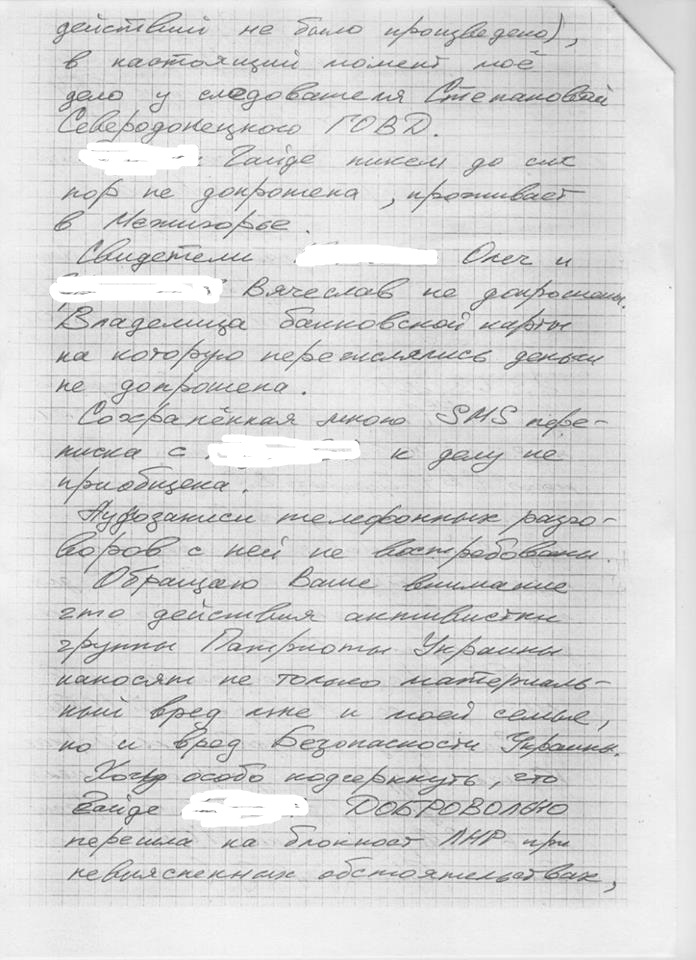 действий не было произведено),
в настоящий момент моё
дело у следователя Степановой
Северодонецкого ГОВД.
Гайде никем до сих
пор не допрошена, проживает
в Межигорье.
Свидетели Олег и
Вячеслав не допрошены.
Владелица банковской карты
на которую перечислялись деньги
не допрошена.
Сохранённая мною SMS пере-
писка с к делу не
приобщена.
Аудиозаписи телефонных разго-
воров с ней не востребованы.
Обращаю Ваше внимание
что действия активистки
группы Патриоты Украины
наносят не только материаль-
ный вред мне и моей семье,
но и вред Безопасности Украины.
Хочу особо подчеркнуть, что
Гайде ДОБРОВОЛЬНО
перешла на блокпост ЛНР при
невыясненных обстоятельствах,